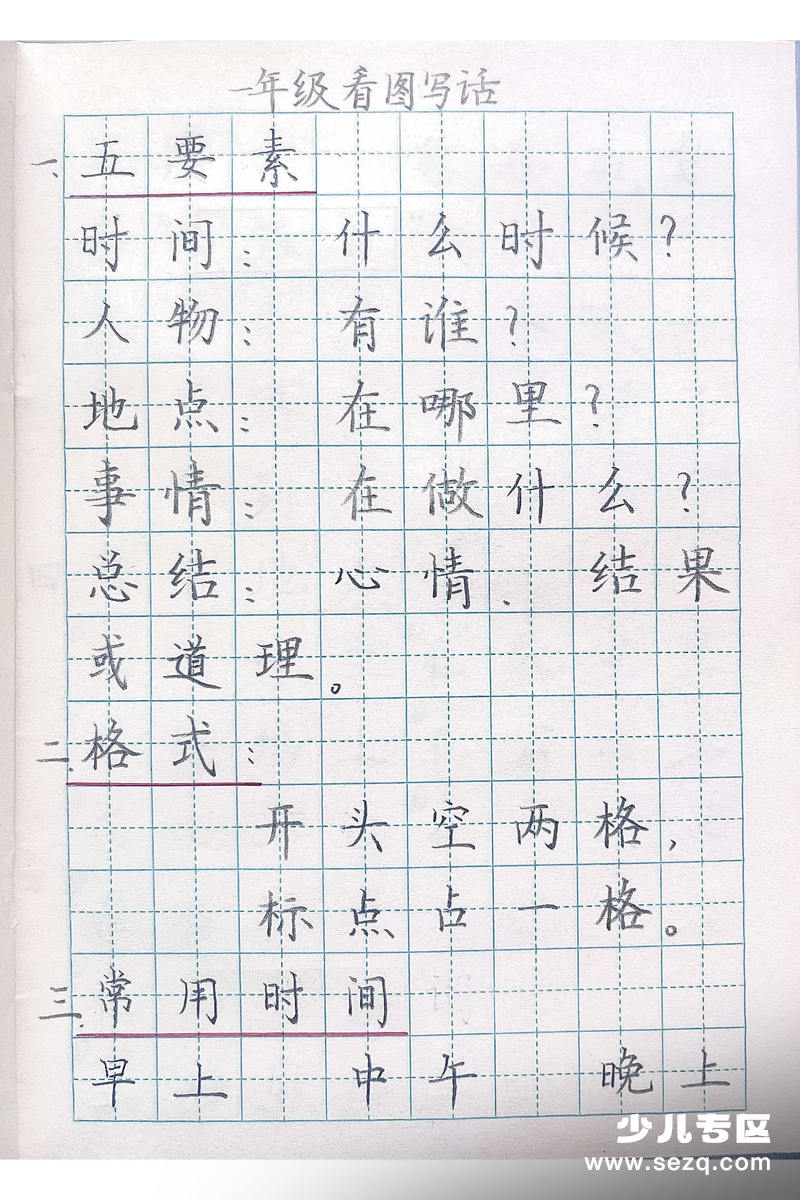 一年级看图写话
一、五要素
时间：什么时候？
人物：有谁？
地点：在哪里？
事情：在做什么？
总结：心情、结果
或道理。
二、格式：
开头空两格，
标点占一格。
三、常用时间
早上 中午 晚上
少儿专区
www.sezq.com